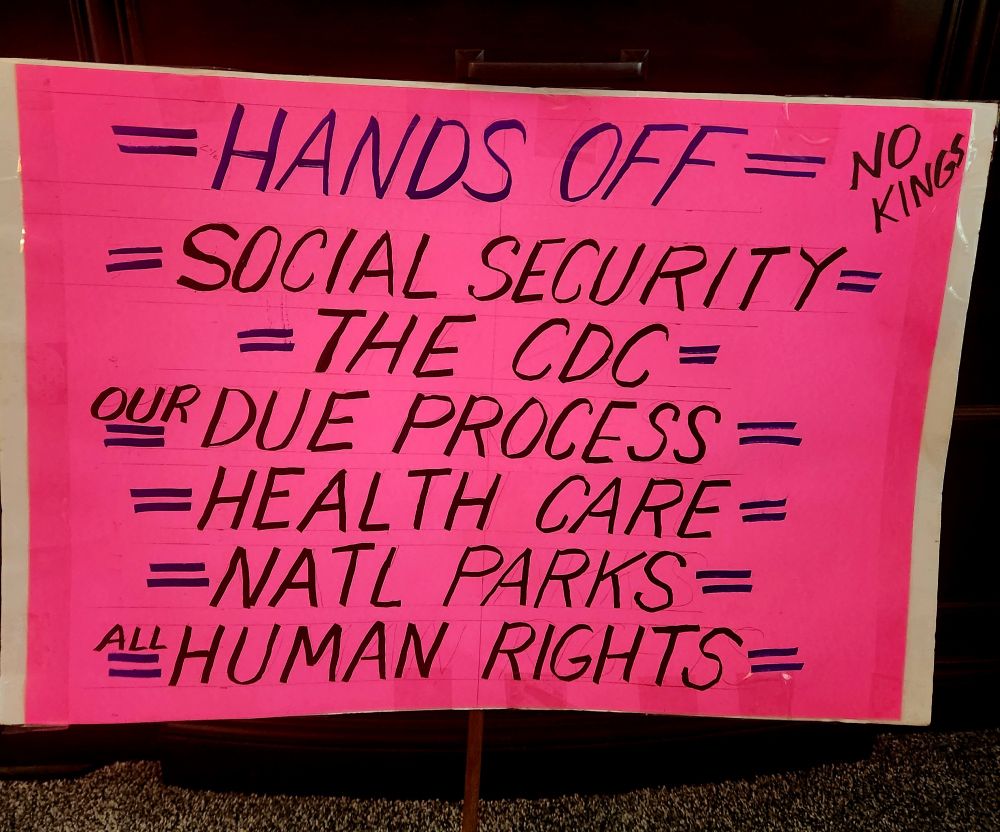 = HANDS OFF =
NO
KINGS
= SOCIAL SECURITY =
= THE CDC =
= OUR DUE PROCESS =
= HEALTH CARE =
= NATL PARKS =
= ALL HUMAN RIGHTS =